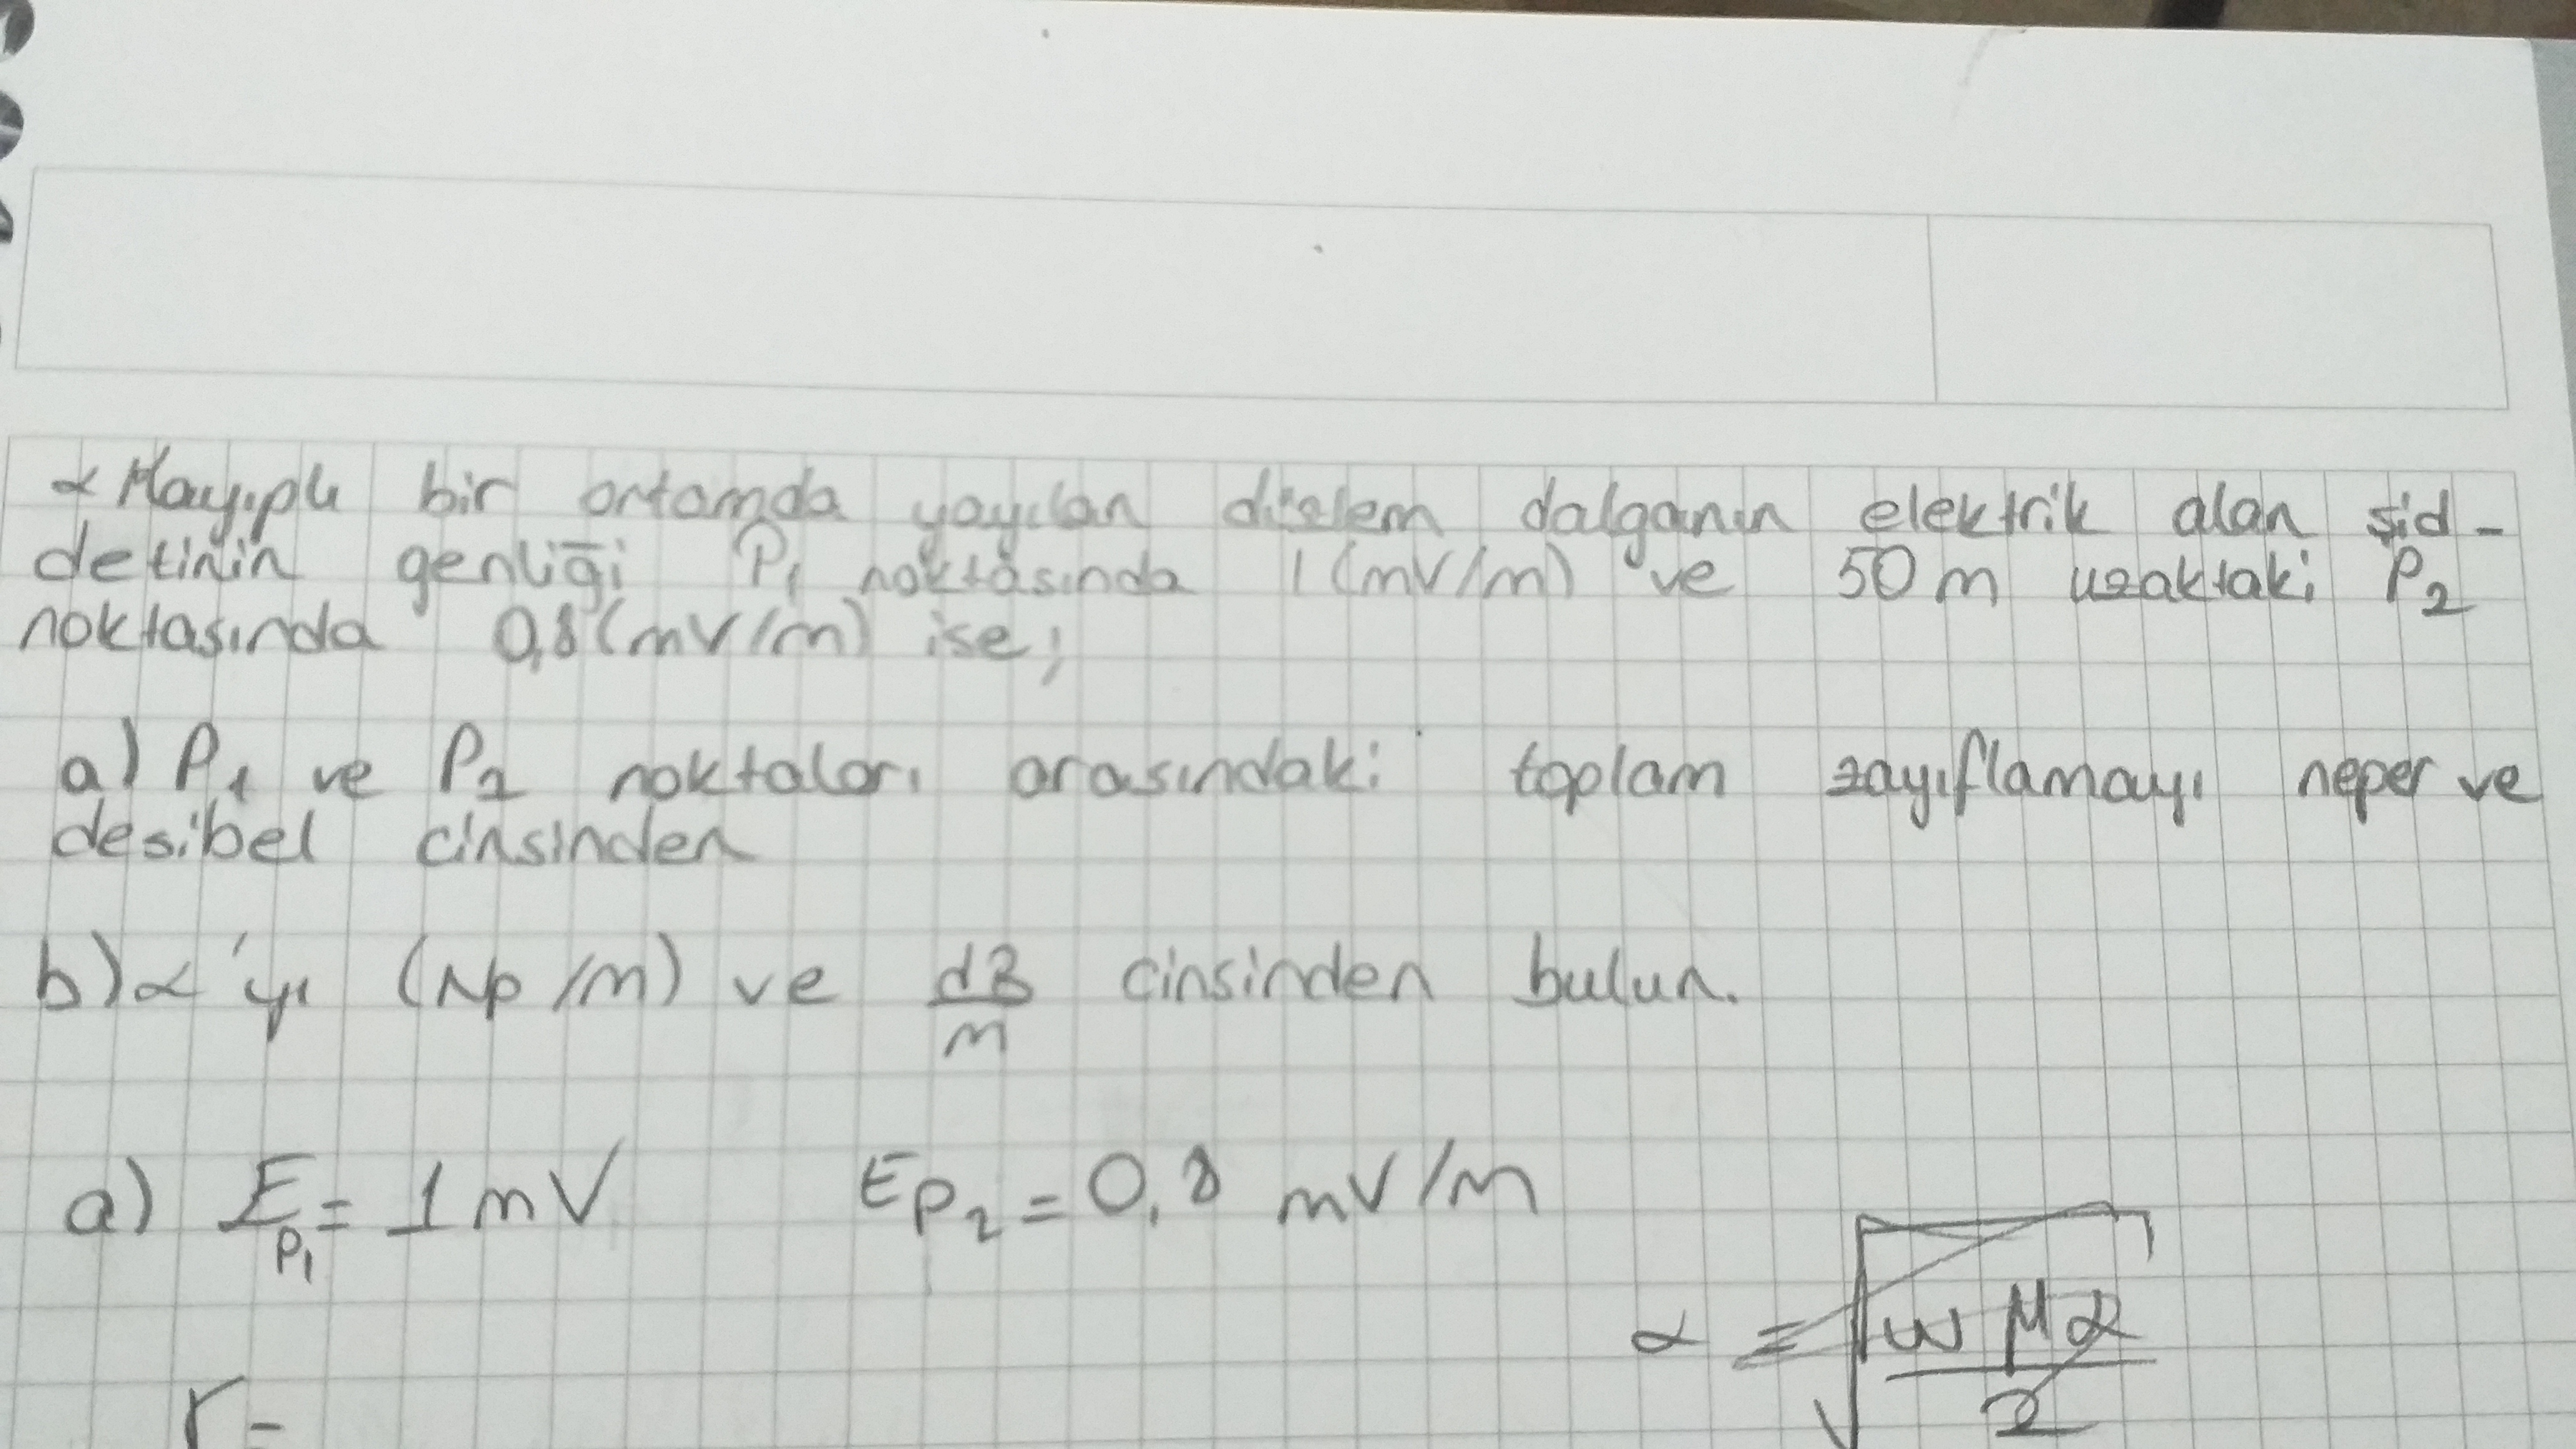 α Kayıplı bir ortamda yayılan düzlem dalganın elektrik alan şid-
detinin genliği P₁ noktasında 1 (mV/m) ve 50 m uzaktaki P₂
noktasında 0,8 (mV/m) ise;
a) P₁ ve P₂ noktaları arasındaki toplam zayıflamayı neper ve
desibel cinsinden
b) α'yı (Np/m) ve dB/m cinsinden bulun.
a) E_P₁ = 1 mV E_P₂ = 0,8 mV/m
α = √(ωμα/2)